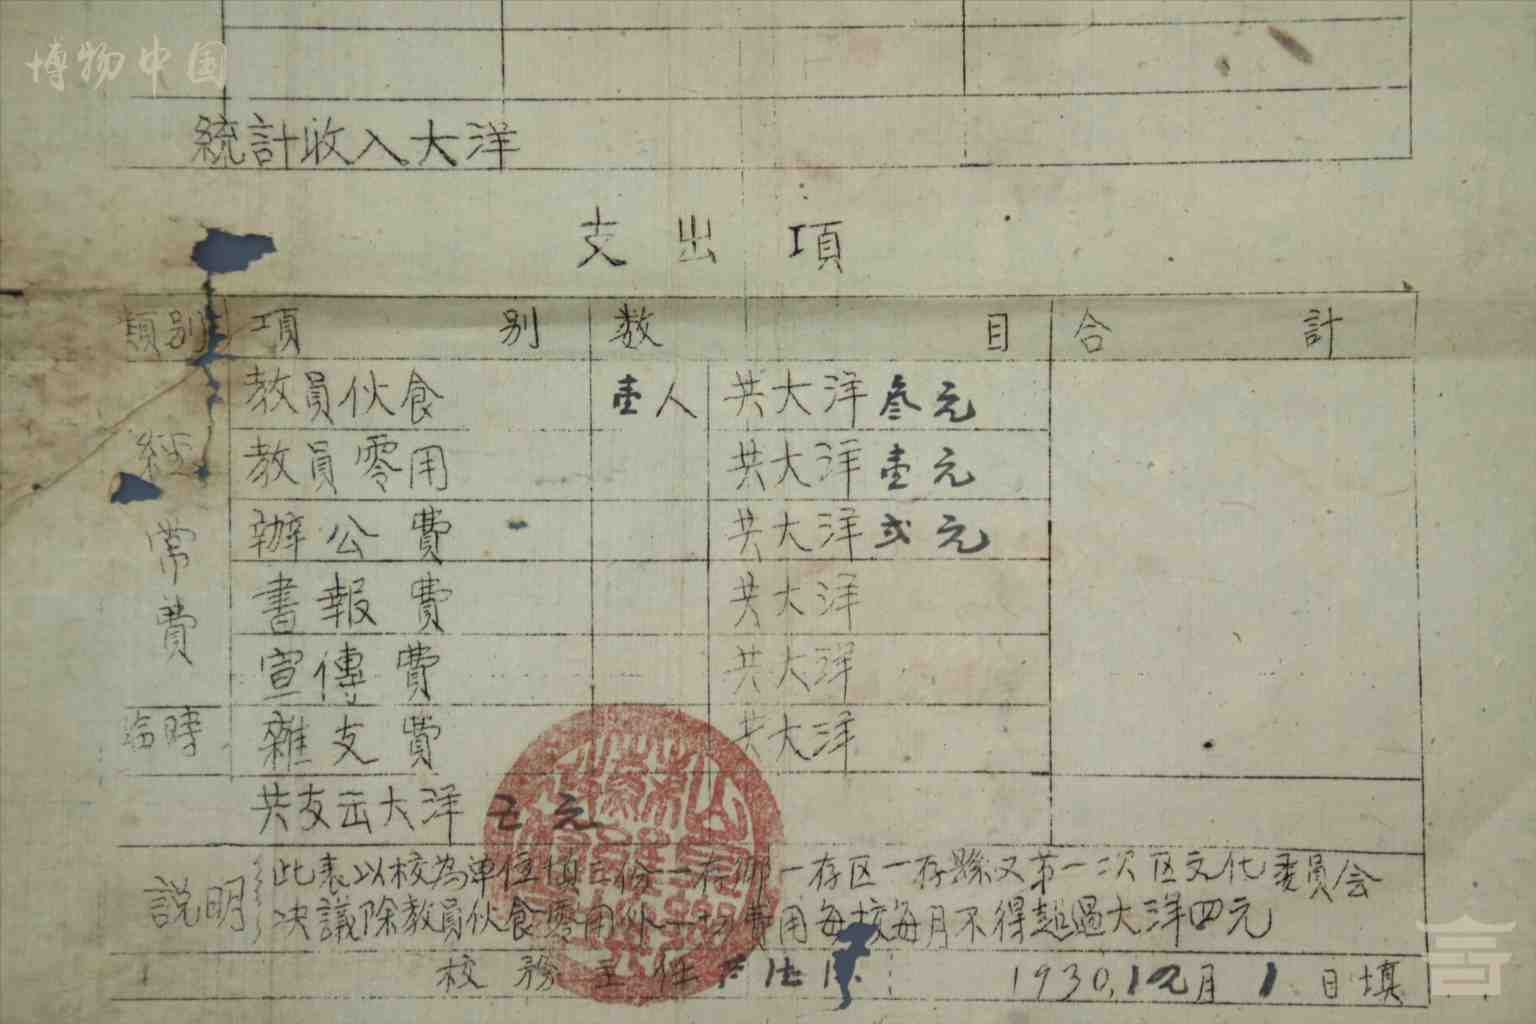 博物中国
統計收入大洋
支出項
類別 項別 数目 合計
經常費
教員伙食 壹人 共大洋叁元
教員零用 共大洋壹元
辦公費 共大洋弍元
書報費 共大洋
宣傳費 共大洋
臨時 雜支費 共大洋
共支云大洋 元
説明 此表以校為单位填三份一存鄉一存区一存縣又第一次区文化委員会
决議除教員伙食零用外一切費用每校每月不得超過大洋四元
校務主任 1930,12月1日填